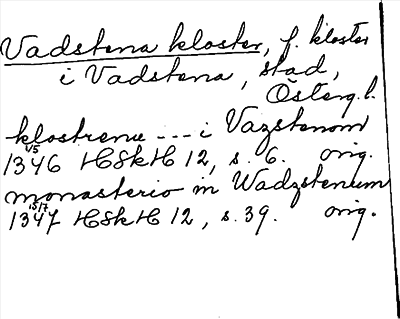 Vadstena kloster, f. kloster
i Vadstena, stad,
Österg. l.
klostrenu --- i Vazstenom
1/5
1346 HSkH 12, s. 6. orig.
monasterio in Wadzstenum
15/7
1347 HSkH 12, s. 39. orig.